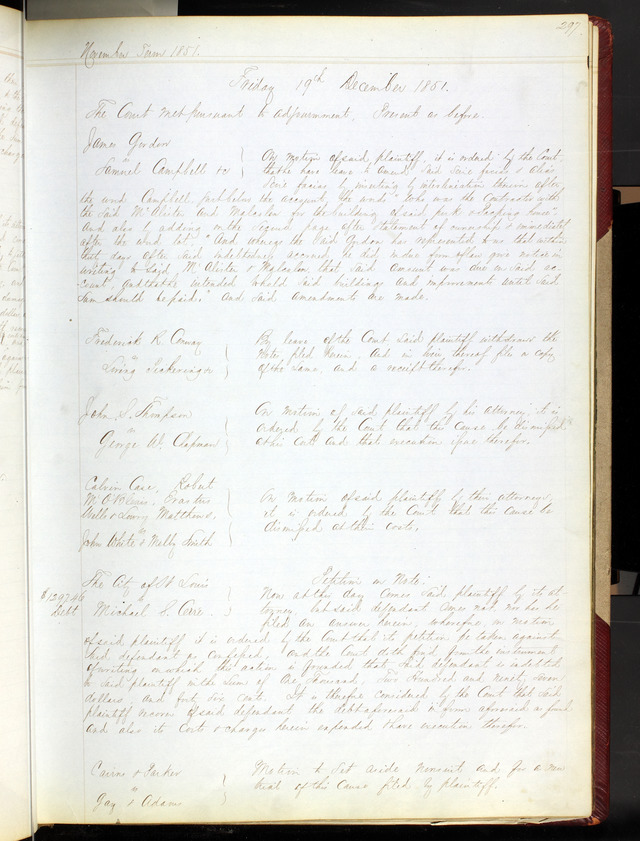 297
November Term 1851.
Friday 19th December 1851.
The Court met pursuant to adjournment, Present as before.
James Gordon
vs
Samuel Campbell &c
On motion of said plaintiff, it is ordered by the Court
that he have leave to amend said Scire facias & Alias
Scire facias by inserting by interlineation therein after
the word Campbell, just before the account, the words "who was the Contractor with
the said McAlister and
and also by adding on the Second page after statement of ownership & immediately
after the word lot: "And whereas the said Gordon has represented to us that within
days after said indebtedness accrued, he did in due form of law give notice in
writing to said McAlister & that said amount was due on said ac-
count, and that he intended to hold said buildings and improvements until said
sum should be paid;" and said amendments are made.
Frederick R. Conway
vs
By leave of the Court said plaintiff withdraws the
Note filed herein, and in lieu thereof files a copy
of the same, and a receipt therefor.
John S. Thompson
vs
George W. Chapman
On motion of said plaintiff by his attorney it is
ordered by the Court that this cause be dismissed
at his costs and that execution issue therefor.
Calvin Case, Robert
Erastus
Wells & Lowry Matthews,
vs
John White & Smith
On motion of said plaintiffs by their attorneys,
it is ordered by the Court that this cause be
dismissed at their costs.
$1297.46
Debt
The City of St Louis
vs
Michael S. Cerre.
Petition on Note.
Now at this day comes said plaintiff by its at-
torney, but said defendant comes not nor has he
filed an answer herein, wherefore, on motion
of said plaintiff it is ordered by the Court that its petition be taken against
said defendant as confessed, and the Court doth find from the instrument
of writing on which this action is founded that said defendant is indebted
to said plaintiff in the sum of One thousand, Two Hundred and ninety seven
dollars, and forty six cents. It is therefore considered by the Court that said
plaintiff recover of said defendant the debt aforesaid in form aforesaid so found
and also its costs & charges herein expended & have execution therefor.
Cairns & Parker
vs
Gay & Adams
Motion to set aside nonsuit and for a new
trial of this cause filed by plaintiff.